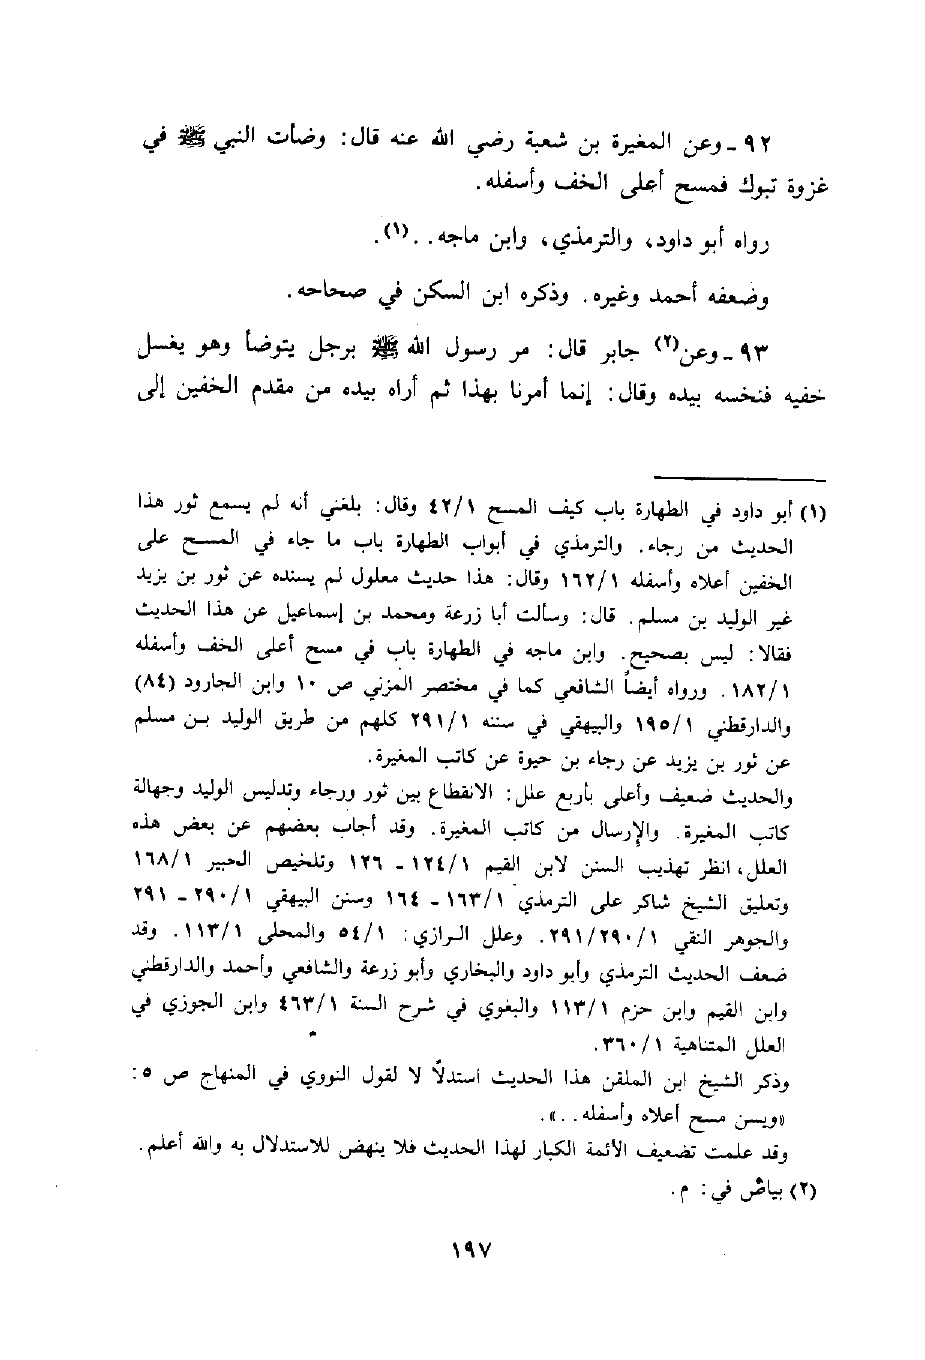 ٩٢ - وعن المغيرة بن شعبة رضي الله عنه قال: وضأت النبي ﷺ في
غزوة تبوك فمسح أعلى الخف وأسفله.
رواه أبو داود، والترمذي، وابن ماجه. .(١).
وضعفه أحمد وغيره. وذكره ابن السكن في صحاحه.
٩٣ - وعن(٢) جابر قال: مر رسول الله ﷺ برجل يتوضأ وهو يغسل
خفيه فنخسه بيده وقال: إنما أمرنا بهذا ثم أراه بيده من مقدم الخفين إلى
(١) أبو داود في الطهارة باب كيف المسح ٤٢/١ وقال: بلغني أنه لم يسمع ثور هذا
الحديث من رجاء. والترمذي في أبواب الطهارة باب ما جاء في المسح على
الخفين أعلاه وأسفله ١٦٢/١ وقال: هذا حديث معلول لم يسنده عن ثور بن يزيد
غير الوليد بن مسلم. قال: وسألت أبا زرعة ومحمد بن إسماعيل عن هذا الحديث
فقالا: ليس بصحيح. وابن ماجه في الطهارة باب في مسح أعلى الخف وأسفله
١٨٢/١. ورواه أيضاً الشافعي كما في مختصر المزني ص ١٠ وابن الجارود (٨٤)
والدارقطني ١٩٥/١ والبيهقي في سننه ٢٩١/١ كلهم من طريق الوليد بن مسلم
عن ثور بن يزيد عن رجاء بن حيوة عن كاتب المغيرة.
والحديث ضعيف وأعلى بأربع علل: الانقطاع بين ثور ورجاء وتدليس الوليد وجهالة
كاتب المغيرة. والإرسال من كاتب المغيرة. وقد أجاب بعضهم عن بعض هذه
العلل، انظر تهذيب السنن لابن القيم ١٢٤/١ - ١٢٦ وتلخيص الحبير ١٦٨/١
وتعليق الشيخ شاكر على الترمذي ١٦٣/١ - ١٦٤ وسنن البيهقي ٢٩٠/١ - ٢٩١
والجوهر النقي ٢٩١/٢٩٠/١. وعلل الرازي: ٥٤/١ والمحلى ١١٣/١. وقد
ضعف الحديث الترمذي وأبو داود والبخاري وأبو زرعة والشافعي وأحمد والدارقطني
وابن القيم وابن حزم ١١٣/١ والبغوي في شرح السنة ٤٦٣/١ وابن الجوزي في
العلل المتناهية ٣٦٠/١.
وذكر الشيخ ابن الملقن هذا الحديث استدلاً لا لقول النووي في المنهاج ص ٥:
«ويسن مسح أعلاه وأسفله. .».
وقد علمت تضعيف الائمة الكبار لهذا الحديث فلا ينهض للاستدلال به والله أعلم.
(٢) بياض في: م.
١٩٧